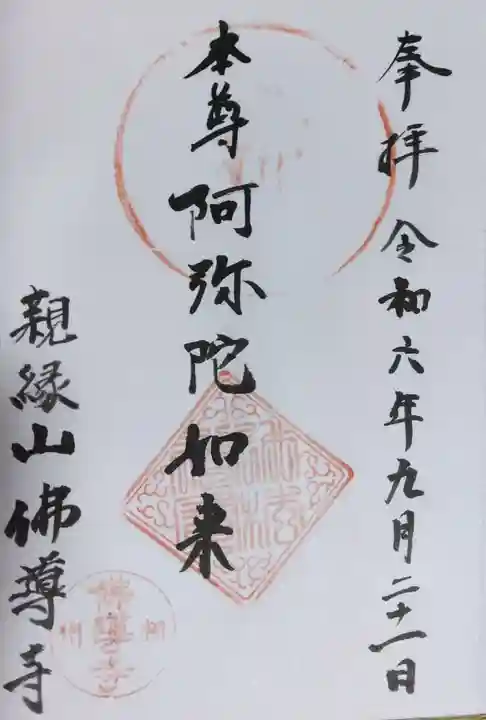 奉拝 令和六年九月二十一日
本尊阿弥陀如来
親縁山佛導寺
佛導寺